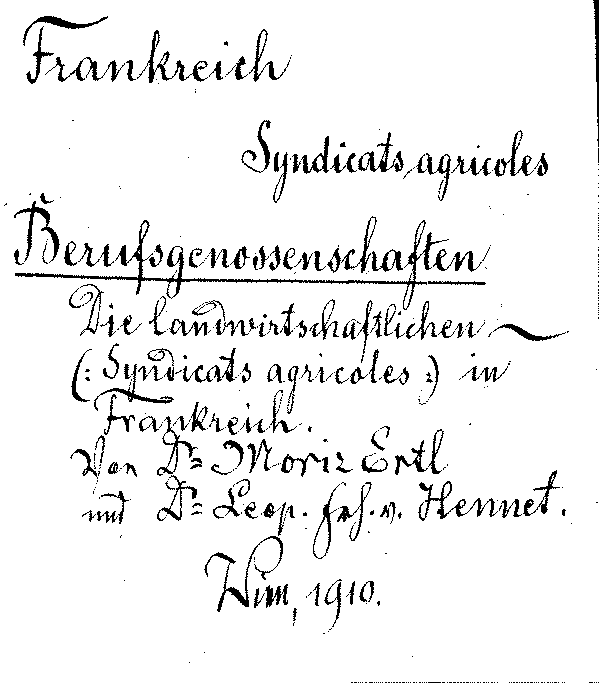 Frankreich
Syndicats agricoles
Berufsgenossenschaften
Die landwirtschaftlichen ~
(: Syndicats agricoles :) in
Frankreich.
Von Dr= Moriz Ertl
und Dr= Leop. Frh. v. Hennet.
Wien, 1910.